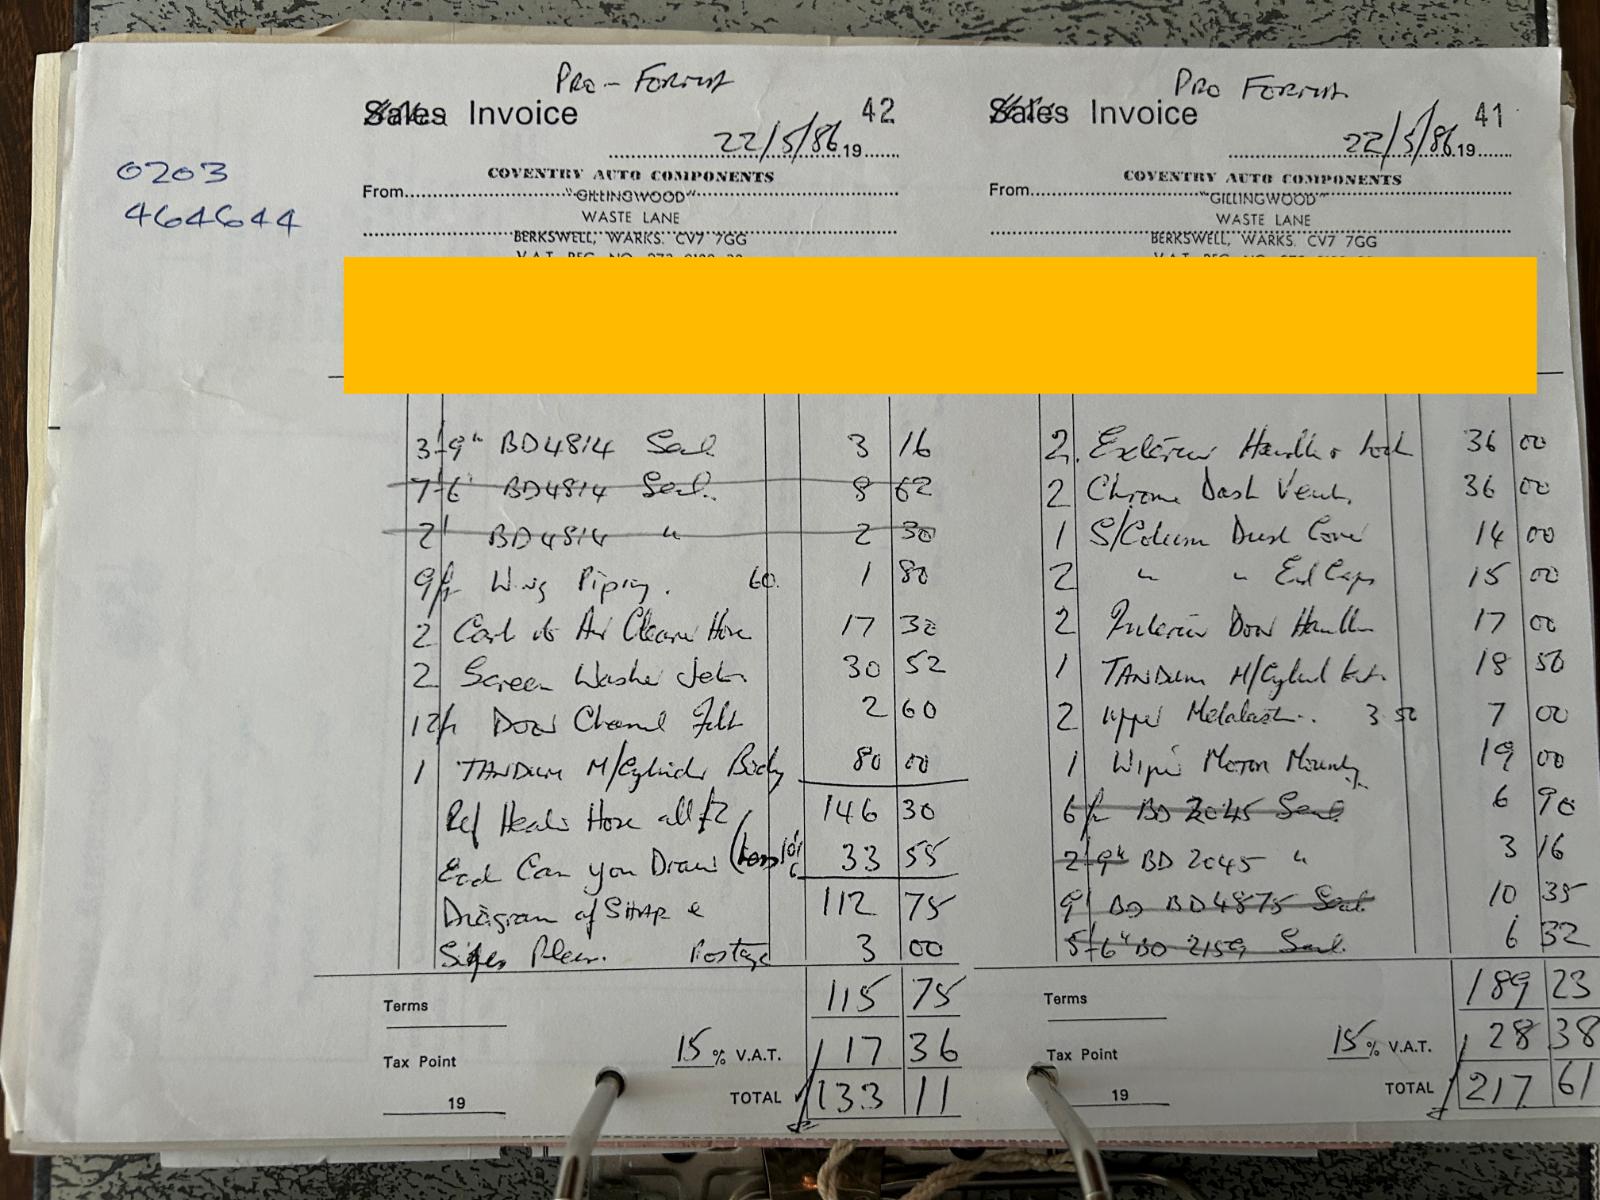 0203
464644
Pro-Forma
Sales Invoice 42
22/5/86 19
COVENTRY AUTO COMPONENTS
From "GILLINGWOOD"
WASTE LANE
BERKSWELL, WARKS. CV7 7GG
3'-9" BD4814 Seal 3 16
7'-6" BD4814 Seal 8 62
2' BD4814 " 2 30
9ft Wing Piping. 60 1 80
2 Carb to Air Cleaner Hose 17 32
2 Screen Washer Jets 30 52
12ft Door Channel Felt 2 60
1 TANDUM M/Cylinder Body 80 00
Ref Heater Hose all £2 146 30
Each Can you Draw (less 33 55
Diagram of SHAPE & 112 75
Sizes Please. Postage 3 00
Terms 115 75
Tax Point 15 % V.A.T. 17 36
19 TOTAL 133 11
Pro Forma
Sales Invoice 41
22/5/86 19
COVENTRY AUTO COMPONENTS
From "GILLINGWOOD"
WASTE LANE
BERKSWELL, WARKS. CV7 7GG
2 Exterior Handles + Lock 36 00
2 Chrome Dash Vents 36 00
1 S/Column Dust Cover 14 00
2 " " End Caps 15 00
2 Interior Door Handles 17 00
1 TANDUM M/Cylind Kit. 18 50
2 Upper Metalastic.. 3 50 7 00
1 Wiper Motor Mounting 19 00
6ft BD 2045 Seal 6 90
2'-9" BD 2045 " 3 16
9' BD BD4875 Seal 10 35
5'-6" BD 2159 Seal 6 32
Terms 189 23
Tax Point 15 % V.A.T. 28 38
19 TOTAL 217 61